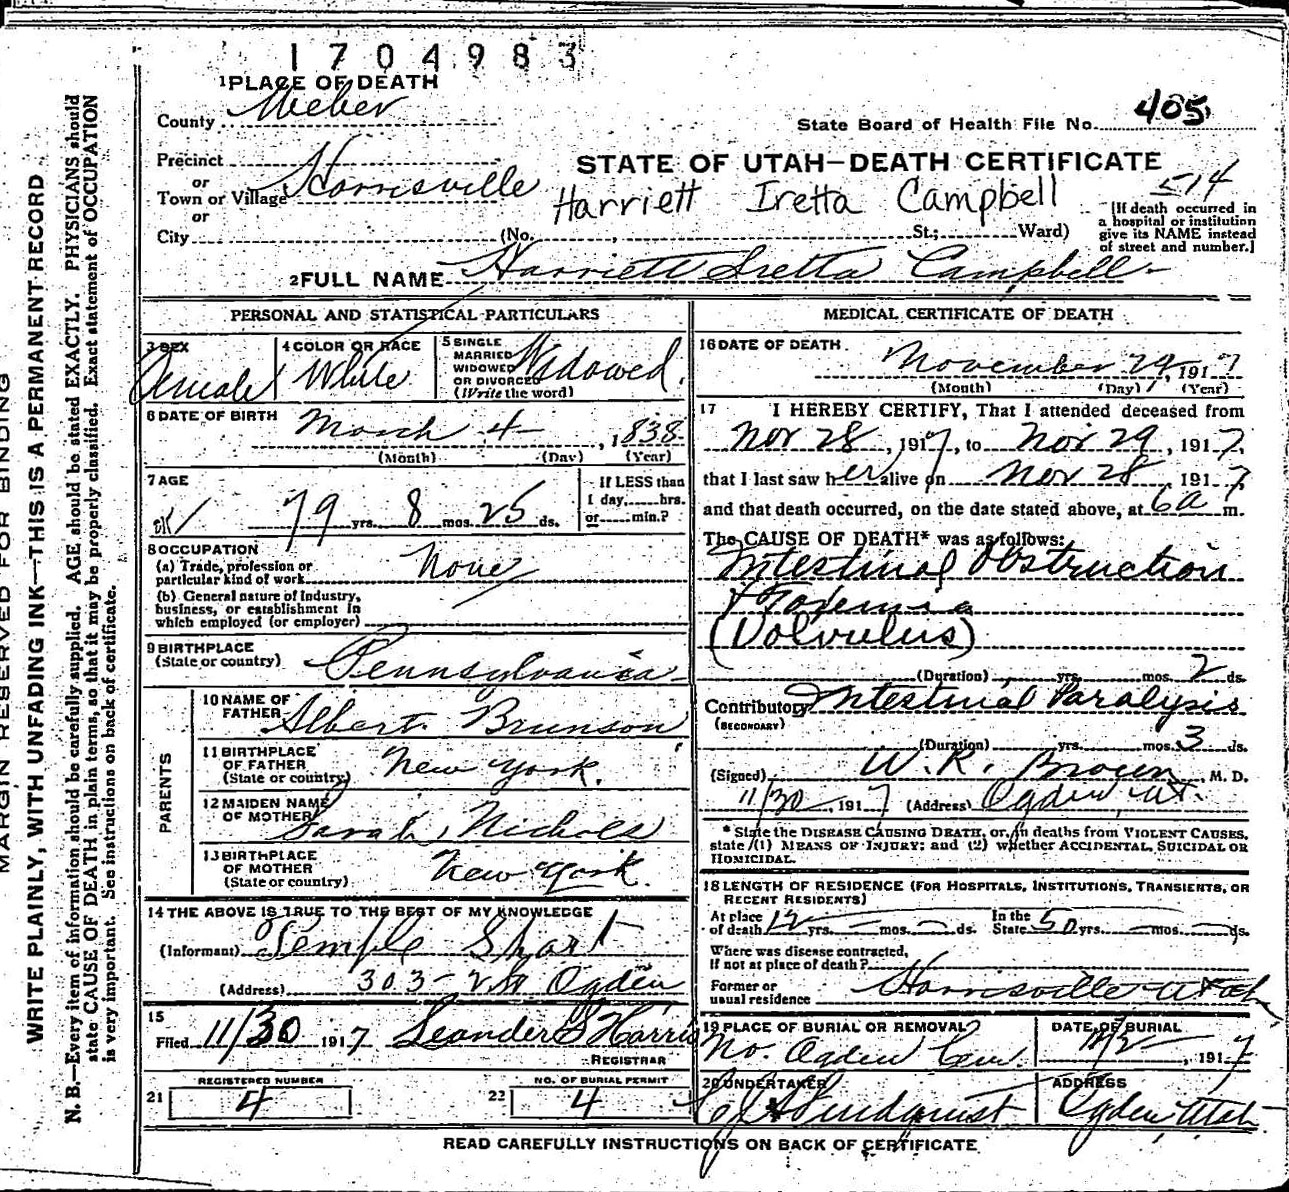 1704983
1 PLACE OF DEATH
County Weber
State Board of Health File No. 405
Precinct
or
Town or Village Harrisville
or
City (No. , St.; Ward)
STATE OF UTAH—DEATH CERTIFICATE
514
Harriett Iretta Campbell
[If death occurred in
a hospital or institution
give its NAME instead
of street and number.]
2 FULL NAME Harriett Iretta Campbell
MARGIN RESERVED FOR BINDING
WRITE PLAINLY, WITH UNFADING INK—THIS IS A PERMANENT RECORD
N. B.—Every item of information should be carefully supplied. AGE should be stated EXACTLY. PHYSICIANS should
state CAUSE OF DEATH in plain terms, so that it may be properly classified. Exact statement of OCCUPATION
is very important. See instructions on back of certificate.
PERSONAL AND STATISTICAL PARTICULARS
3 SEX
Female
4 COLOR OR RACE
White
5 SINGLE
MARRIED
WIDOWED
OR DIVORCED
(Write the word)
Widowed.
6 DATE OF BIRTH
March 4, 1838
(Month) (Day) (Year)
7 AGE
79 yrs. 8 mos. 25 ds.
If LESS than
1 day, hrs.
or min.?
8 OCCUPATION
(a) Trade, profession or
particular kind of work None
(b) General nature of industry,
business, or establishment in
which employed (or employer)
9 BIRTHPLACE
(State or country) Pennsylvania
PARENTS
10 NAME OF
FATHER Albert Brunson
11 BIRTHPLACE
OF FATHER
(State or country) New York.
12 MAIDEN NAME
OF MOTHER Sarah Nichols
13 BIRTHPLACE
OF MOTHER
(State or country) New York.
14 THE ABOVE IS TRUE TO THE BEST OF MY KNOWLEDGE
(Informant) Temple Short
(Address) 303 - 2nd Ogden
15
Filed 11/30 1917 Leander S Harris
REGISTRAR
21 REGISTERED NUMBER 4
22 NO. OF BURIAL PERMIT 4
MEDICAL CERTIFICATE OF DEATH
16 DATE OF DEATH
November 29, 1917
(Month) (Day) (Year)
17 I HEREBY CERTIFY, That I attended deceased from
Nov 28, 1917, to Nov 29, 1917,
that I last saw her alive on Nov 28, 1917,
and that death occurred, on the date stated above, at 6 a m.
The CAUSE OF DEATH* was as follows:
Intestinal Obstruction
+ Toxemia
(Volvulus)
(Duration) yrs. mos. 2 ds.
Contributory Intestinal Paralysis
(SECONDARY)
(Duration) yrs. mos. 3 ds.
(Signed) W. R. Brown, M. D.
11/30, 1917 (Address) Ogden Ut.
* State the DISEASE CAUSING DEATH, or, in deaths from VIOLENT CAUSES,
state (1) MEANS OF INJURY; and (2) whether ACCIDENTAL, SUICIDAL OR
HOMICIDAL.
18 LENGTH OF RESIDENCE (FOR HOSPITALS, INSTITUTIONS, TRANSIENTS, OR
RECENT RESIDENTS)
At place
of death 12 yrs. — mos. — ds.
In the
State 50 yrs. — mos. — ds.
Where was disease contracted,
If not at place of death?
Former or
usual residence Harrisville Utah
19 PLACE OF BURIAL OR REMOVAL
No. Ogden Cem.
DATE OF BURIAL
12/2, 1917
20 UNDERTAKER
Lindquist
ADDRESS
Ogden, Utah.
READ CAREFULLY INSTRUCTIONS ON BACK OF CERTIFICATE